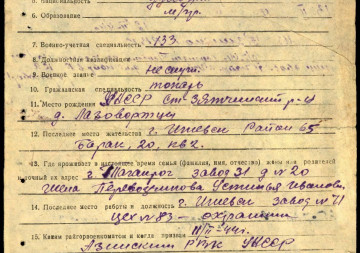 6. Образование м/гр.
7. Военно-учетная специальность 133
8. Должностная квалификация
9. Воинское звание не служ.
10. Гражданская специальность токарь
11. Место рождения УАССР
д.
12. Последнее место жительства г. Ижевск район 65
барак, 20, кв 2.
13. Где проживает в настоящее время семья (фамилия, имя, отчество) жены или родителей
г. Таганрог завод 31 д № 20
жена Перевозчикова Устинья Ивановн.
14. Последнее место работы и должность г. Ижевск завод № 71
цех № 83 - охранник
15. Каким райгорвоенкоматом и когда призван
Азинским РВК УАССР